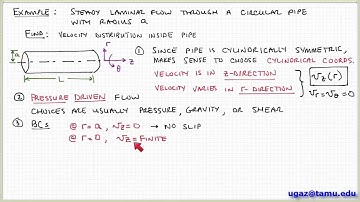 EXAMPLE: STEADY LAMINAR FLOW THROUGH A CIRCULAR PIPE
WITH RADIUS a
FIND: VELOCITY DISTRIBUTION INSIDE PIPE
a
r
z
θ
L
① SINCE PIPE IS CYLINDRICALLY SYMMETRIC,
MAKES SENSE TO CHOOSE CYLINDRICAL COORDS.
VELOCITY IS IN Z-DIRECTION
VELOCITY VARIES IN r-DIRECTION
v_z(r)
v_r = v_θ = 0
② PRESSURE DRIVEN FLOW
CHOICES ARE USUALLY PRESSURE, GRAVITY, OR SHEAR
③ BCs @ r=a, v_z=0 → NO SLIP
@ r=0, v_z=FINITE
ugaz@tamu.edu